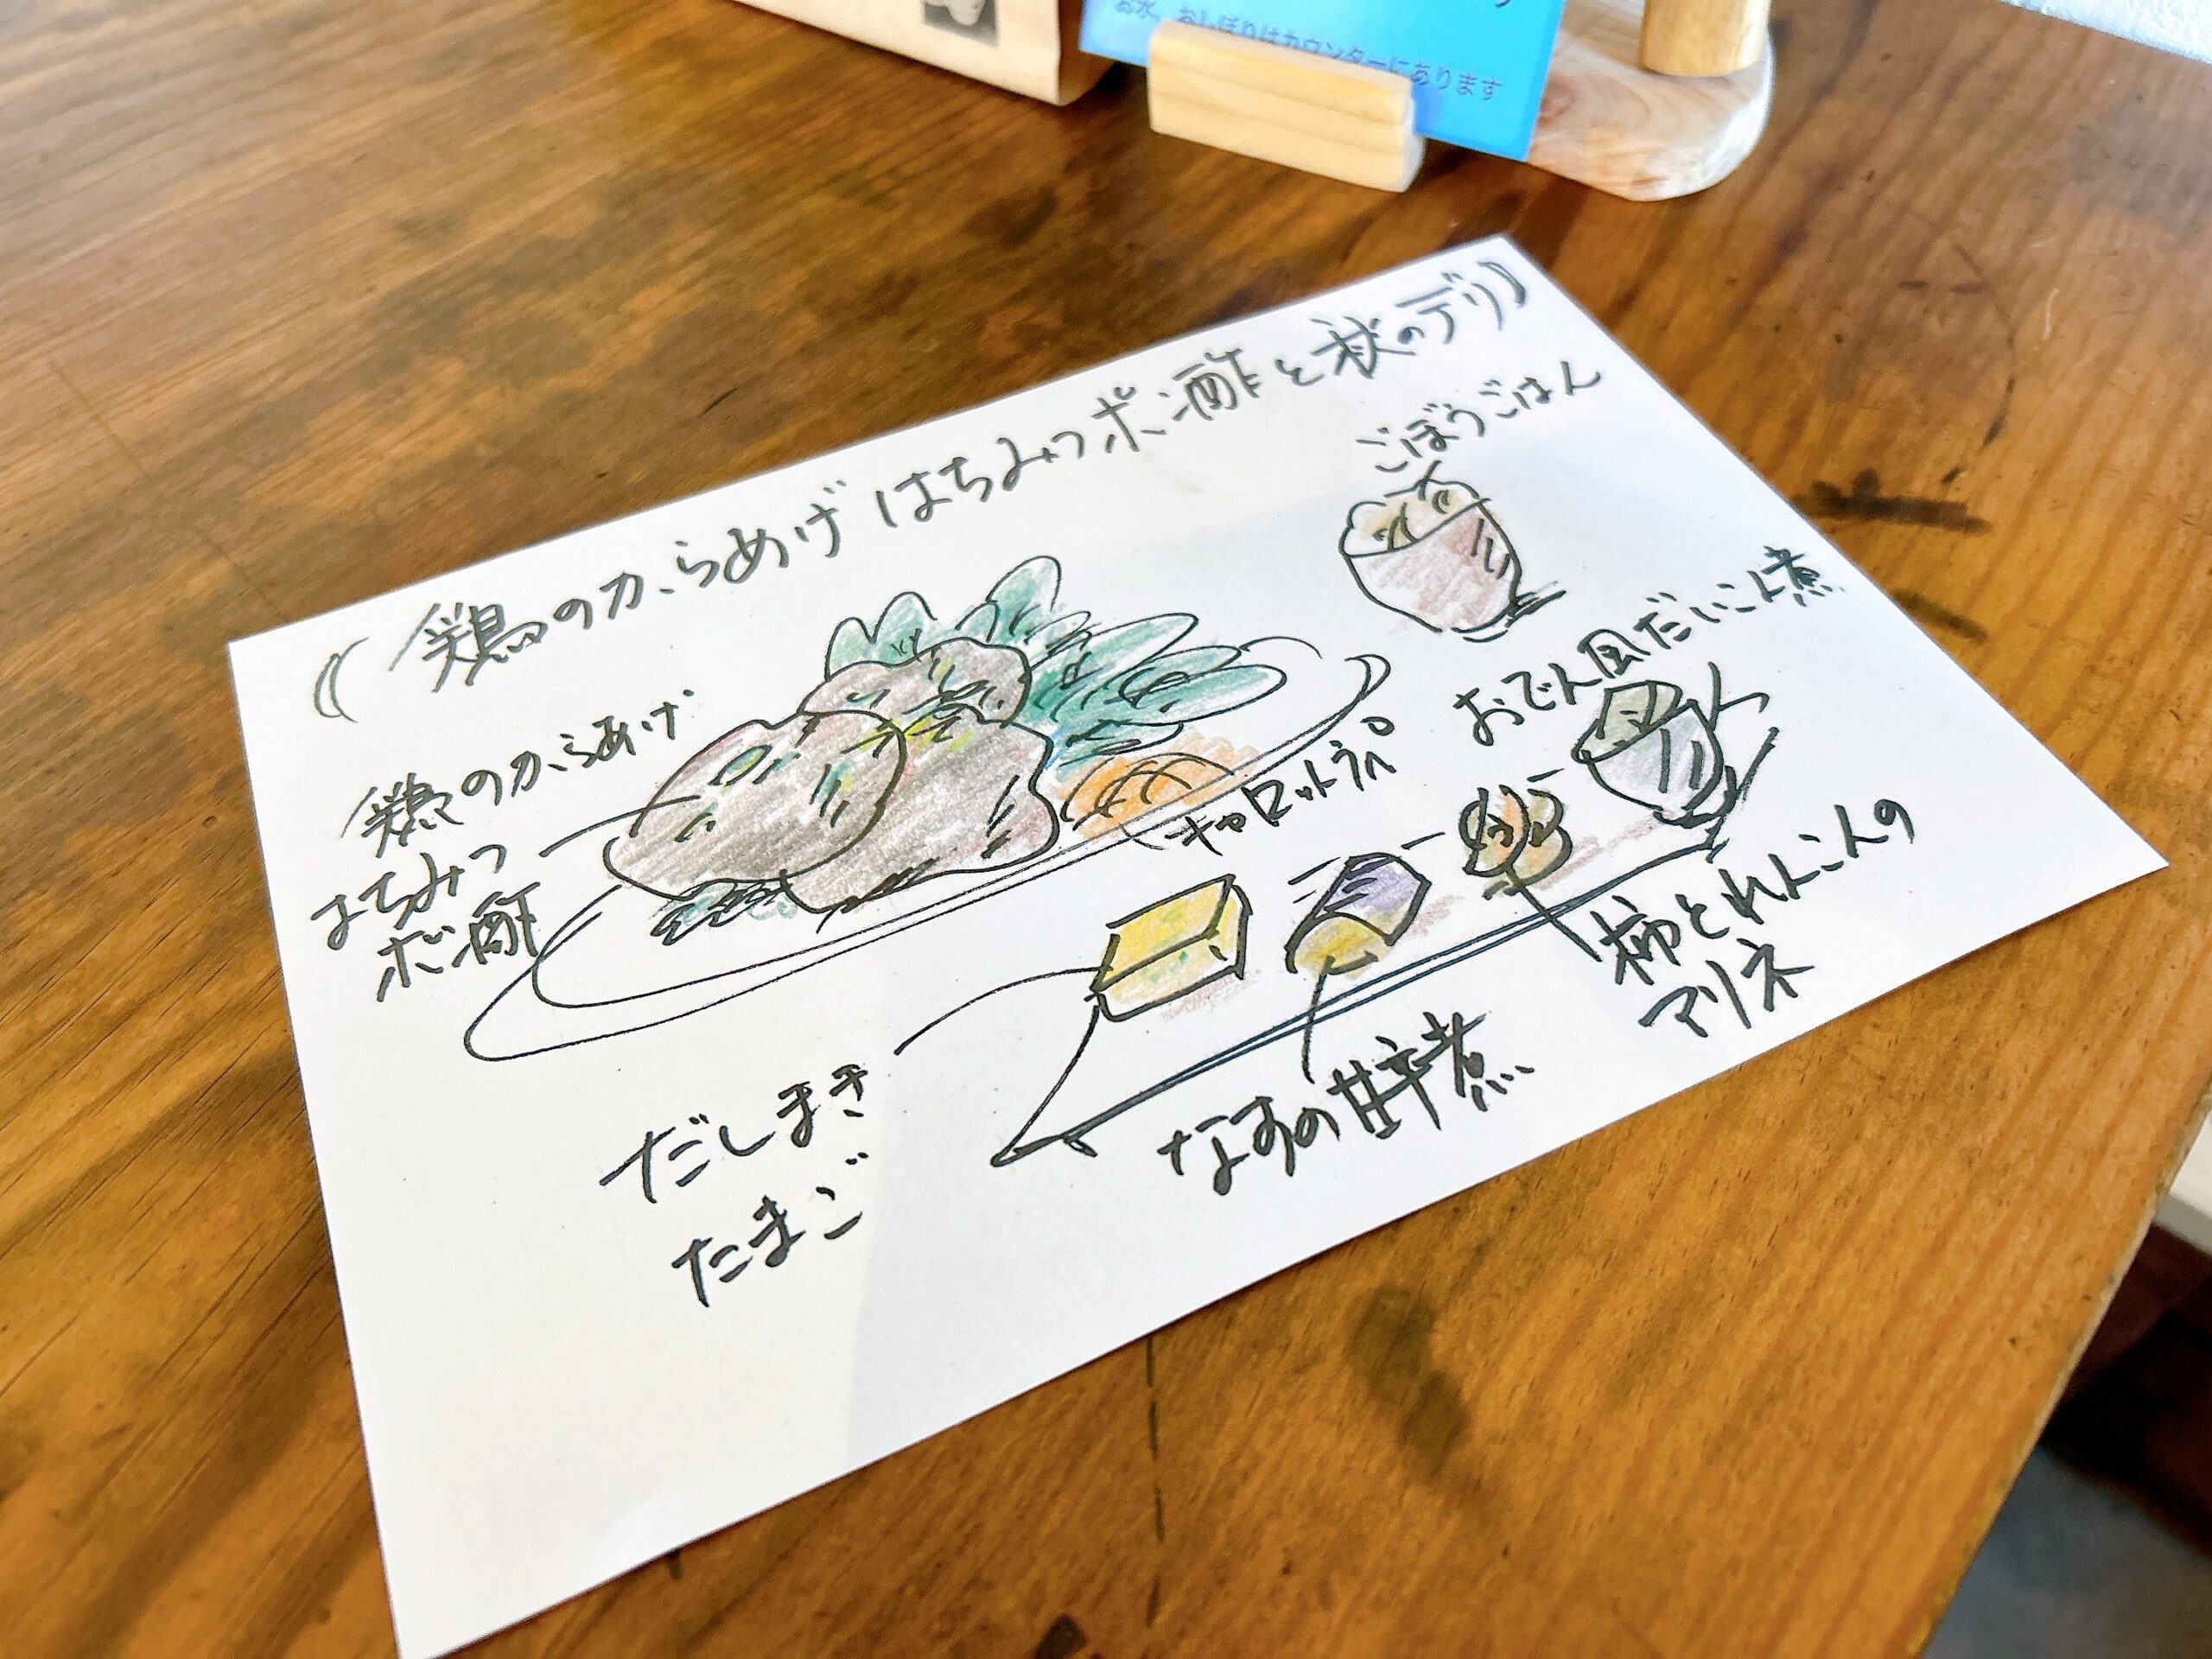 お水、おしぼりはカウンターにあります
《鶏のからあげ はちみつポン酢と秋のデリ》
ごぼうごはん
おでん風だいこん煮
鶏のからあげ
はちみつ
ポン酢
キャロットラペ
柿とれんこんの
マリネ
なすの甘辛煮
だしまき
たまご